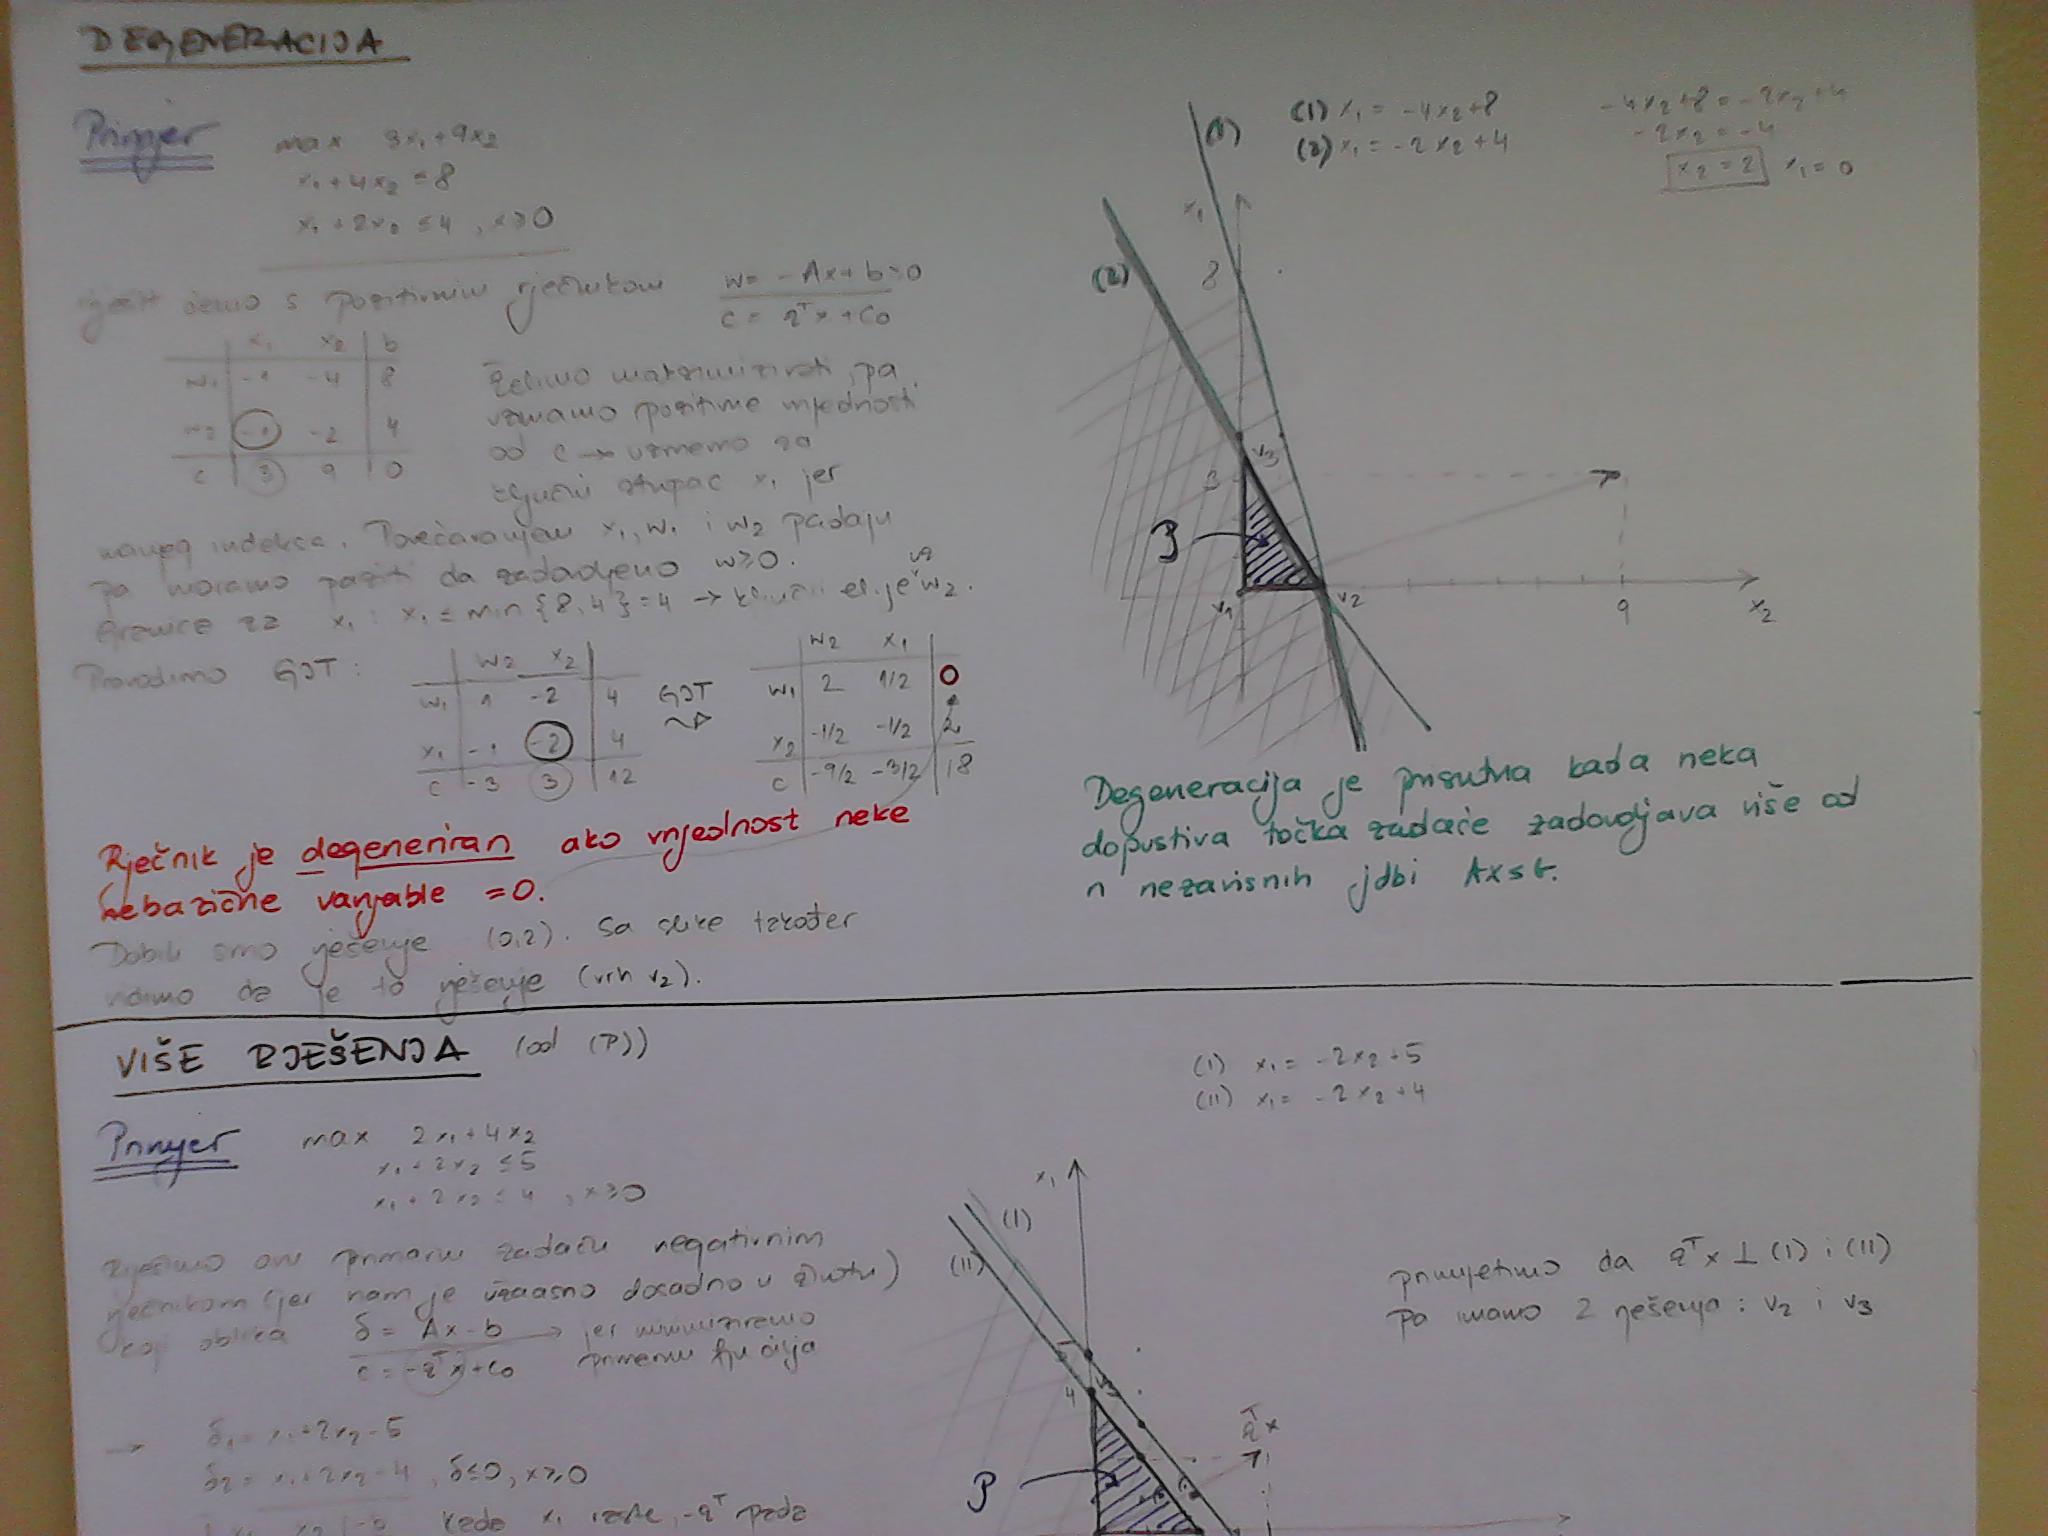 DEGENERACIJA
Primjer
max 3x₁+9x₂
x₁+4x₂ ≤8
x₁+2x₂ ≤4 , x≥0
ćemo s pozitivnim rječnikom
w= -Ax+b≥0
c= qᵀx+c₀
x₁ x₂ b
w₁ -1 -4 8
w₂ -1 -2 4
c 3 9 0
Želimo maksimizirati, pa
uzmamo pozitivne vrijednosti
od c → uzmemo za
ključni stupac x₁ jer
manjeg indeksa. Povećavanjem x₁, w₁ i w₂ padaju
pa moramo paziti da zadovoljeno w≥0.
Granice za x₁: x₁ ≤ min {8,4}=4 → ključni el. je uz w₂.
Provodimo GJT:
w₂ x₂
w₁ 1 -2 4
x₁ -1 -2 4
c -3 3 12
GJT
w₂ x₁
w₁ 2 1/2 0
x₂ -1/2 -1/2 2
c -9/2 -3/2 18
Rječnik je degeneriran ako vrijednost neke
nebazične varijable =0.
Dobili smo rješenje (0,2). Sa slike također
vidimo da je to rješenje (vrh v₂).
(1) x₁ = -4x₂+8
(2) x₁ = -2x₂+4
-4x₂+8=-2x₂+4
-2x₂=-4
x₂=2 x₁=0
(1)
(2)
x₁
8
3
v₃
P
v₁
v₂
9
x₂
Degeneracija je prisutna kada neka
dopustiva točka zadaće zadovoljava više od
n nezavisnih jdbi Ax≤b.
VIŠE RJEŠENJA (od (P))
Primjer
max 2x₁+4x₂
x₁+2x₂ ≤5
x₁+2x₂ ≤4 , x≥0
Riješimo ovu primarnu zadaću negativnim
rječnikom (jer nam je užaasno dosadno u životu)
koji oblika
δ= Ax-b
c=-qᵀx+c₀
→ jer minimiziramo
primarnu fju cilja
→ δ₁= x₁+2x₂-5
δ₂= x₁+2x₂-4 , δ≤0, x≥0
x₁ x₂ -b
kada x₁ raste, -qᵀ pada
(I) x₁= -2x₂+5
(II) x₁= -2x₂+4
x₁
(I)
(II)
5
4
v₃
P
qᵀx
primjetimo da qᵀx ⊥ (I) i (II)
pa imamo 2 rješenja: v₂ i v₃